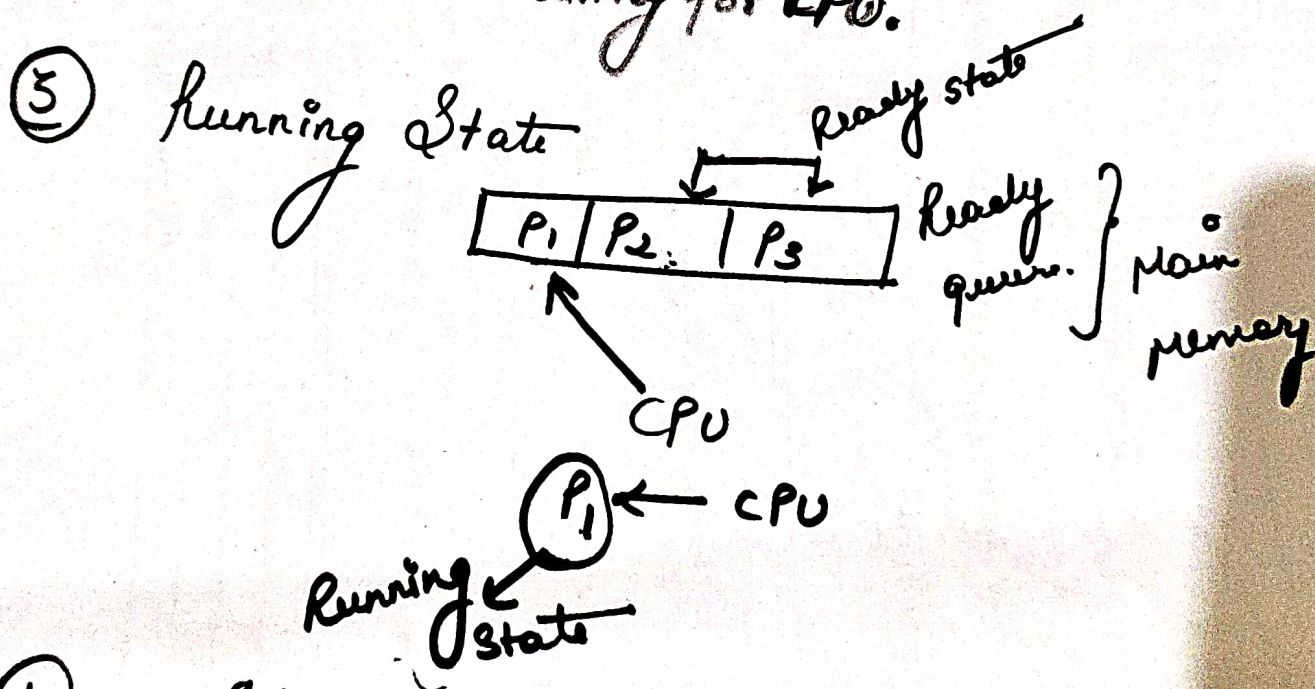 for CPU.
3 Running State
Ready state
P1 P2 P3
Ready
queue.
Main
Memory
CPU
P1 CPU
Running
State